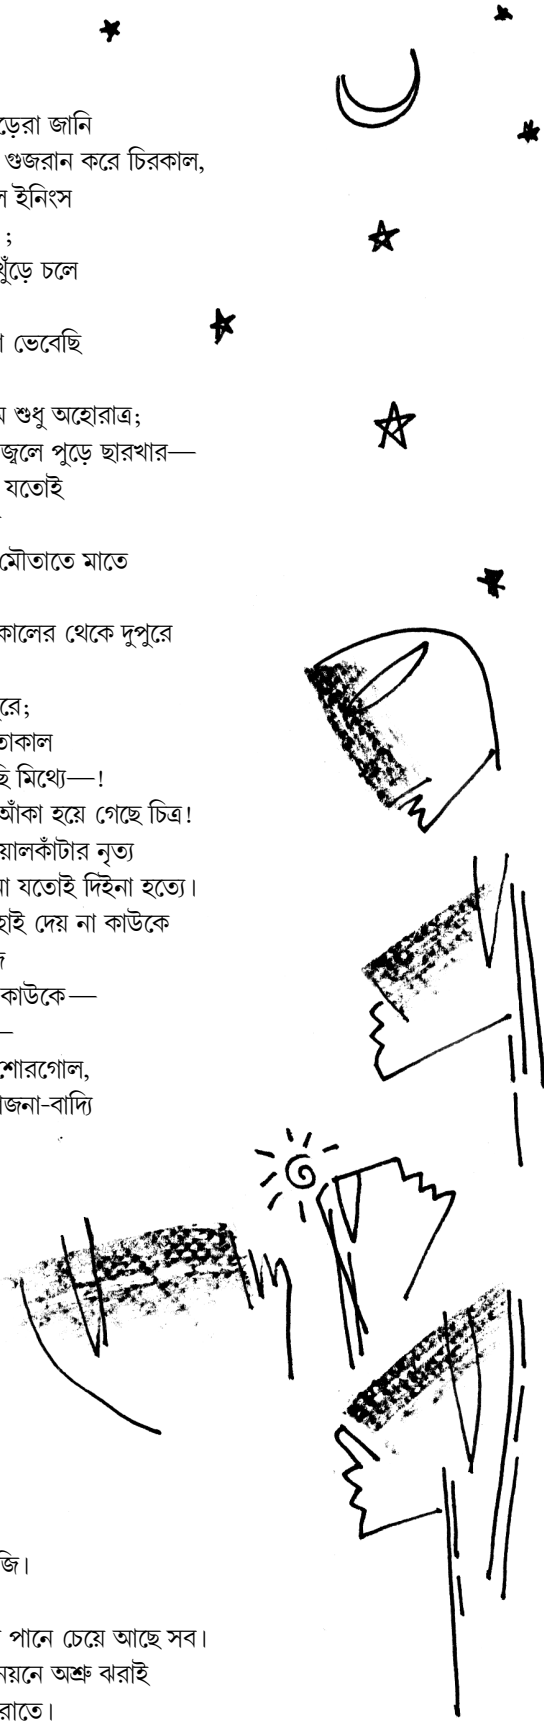 ড়েরা জানি
গুজরান করে চিরকাল,
ইনিংস
;
খুঁড়ে চলে
ভেবেছি
শুধু অহোরাত্র;
জ্বলে পুড়ে ছারখার—
যতোই
মৌতাতে মাতে
কালের থেকে দুপুরে
রে;
তাকাল
ছি মিথ্যে—!
আঁকা হয়ে গেছে চিত্র!
য়ালকাঁটার নৃত্য
না যতোই দিইনা হত্যে।
হাই দেয় না কাউকে
কাউকে—
—
শোরগোল,
জনা-বাদ্যি
জি।
পানে চেয়ে আছে সব।
নয়নে অশ্রু ঝরাই
রাতে।